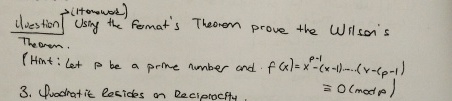 (Homework)
Question) Using the Format's Theorem prove the Wilson's
Theorem.
(Hint: Let p be a prime number and f(x)=x^{p-1}-(x-1)....(x-(p-1)
≡ 0(mod p)
3. Quadratic Resides on Reciprocity.